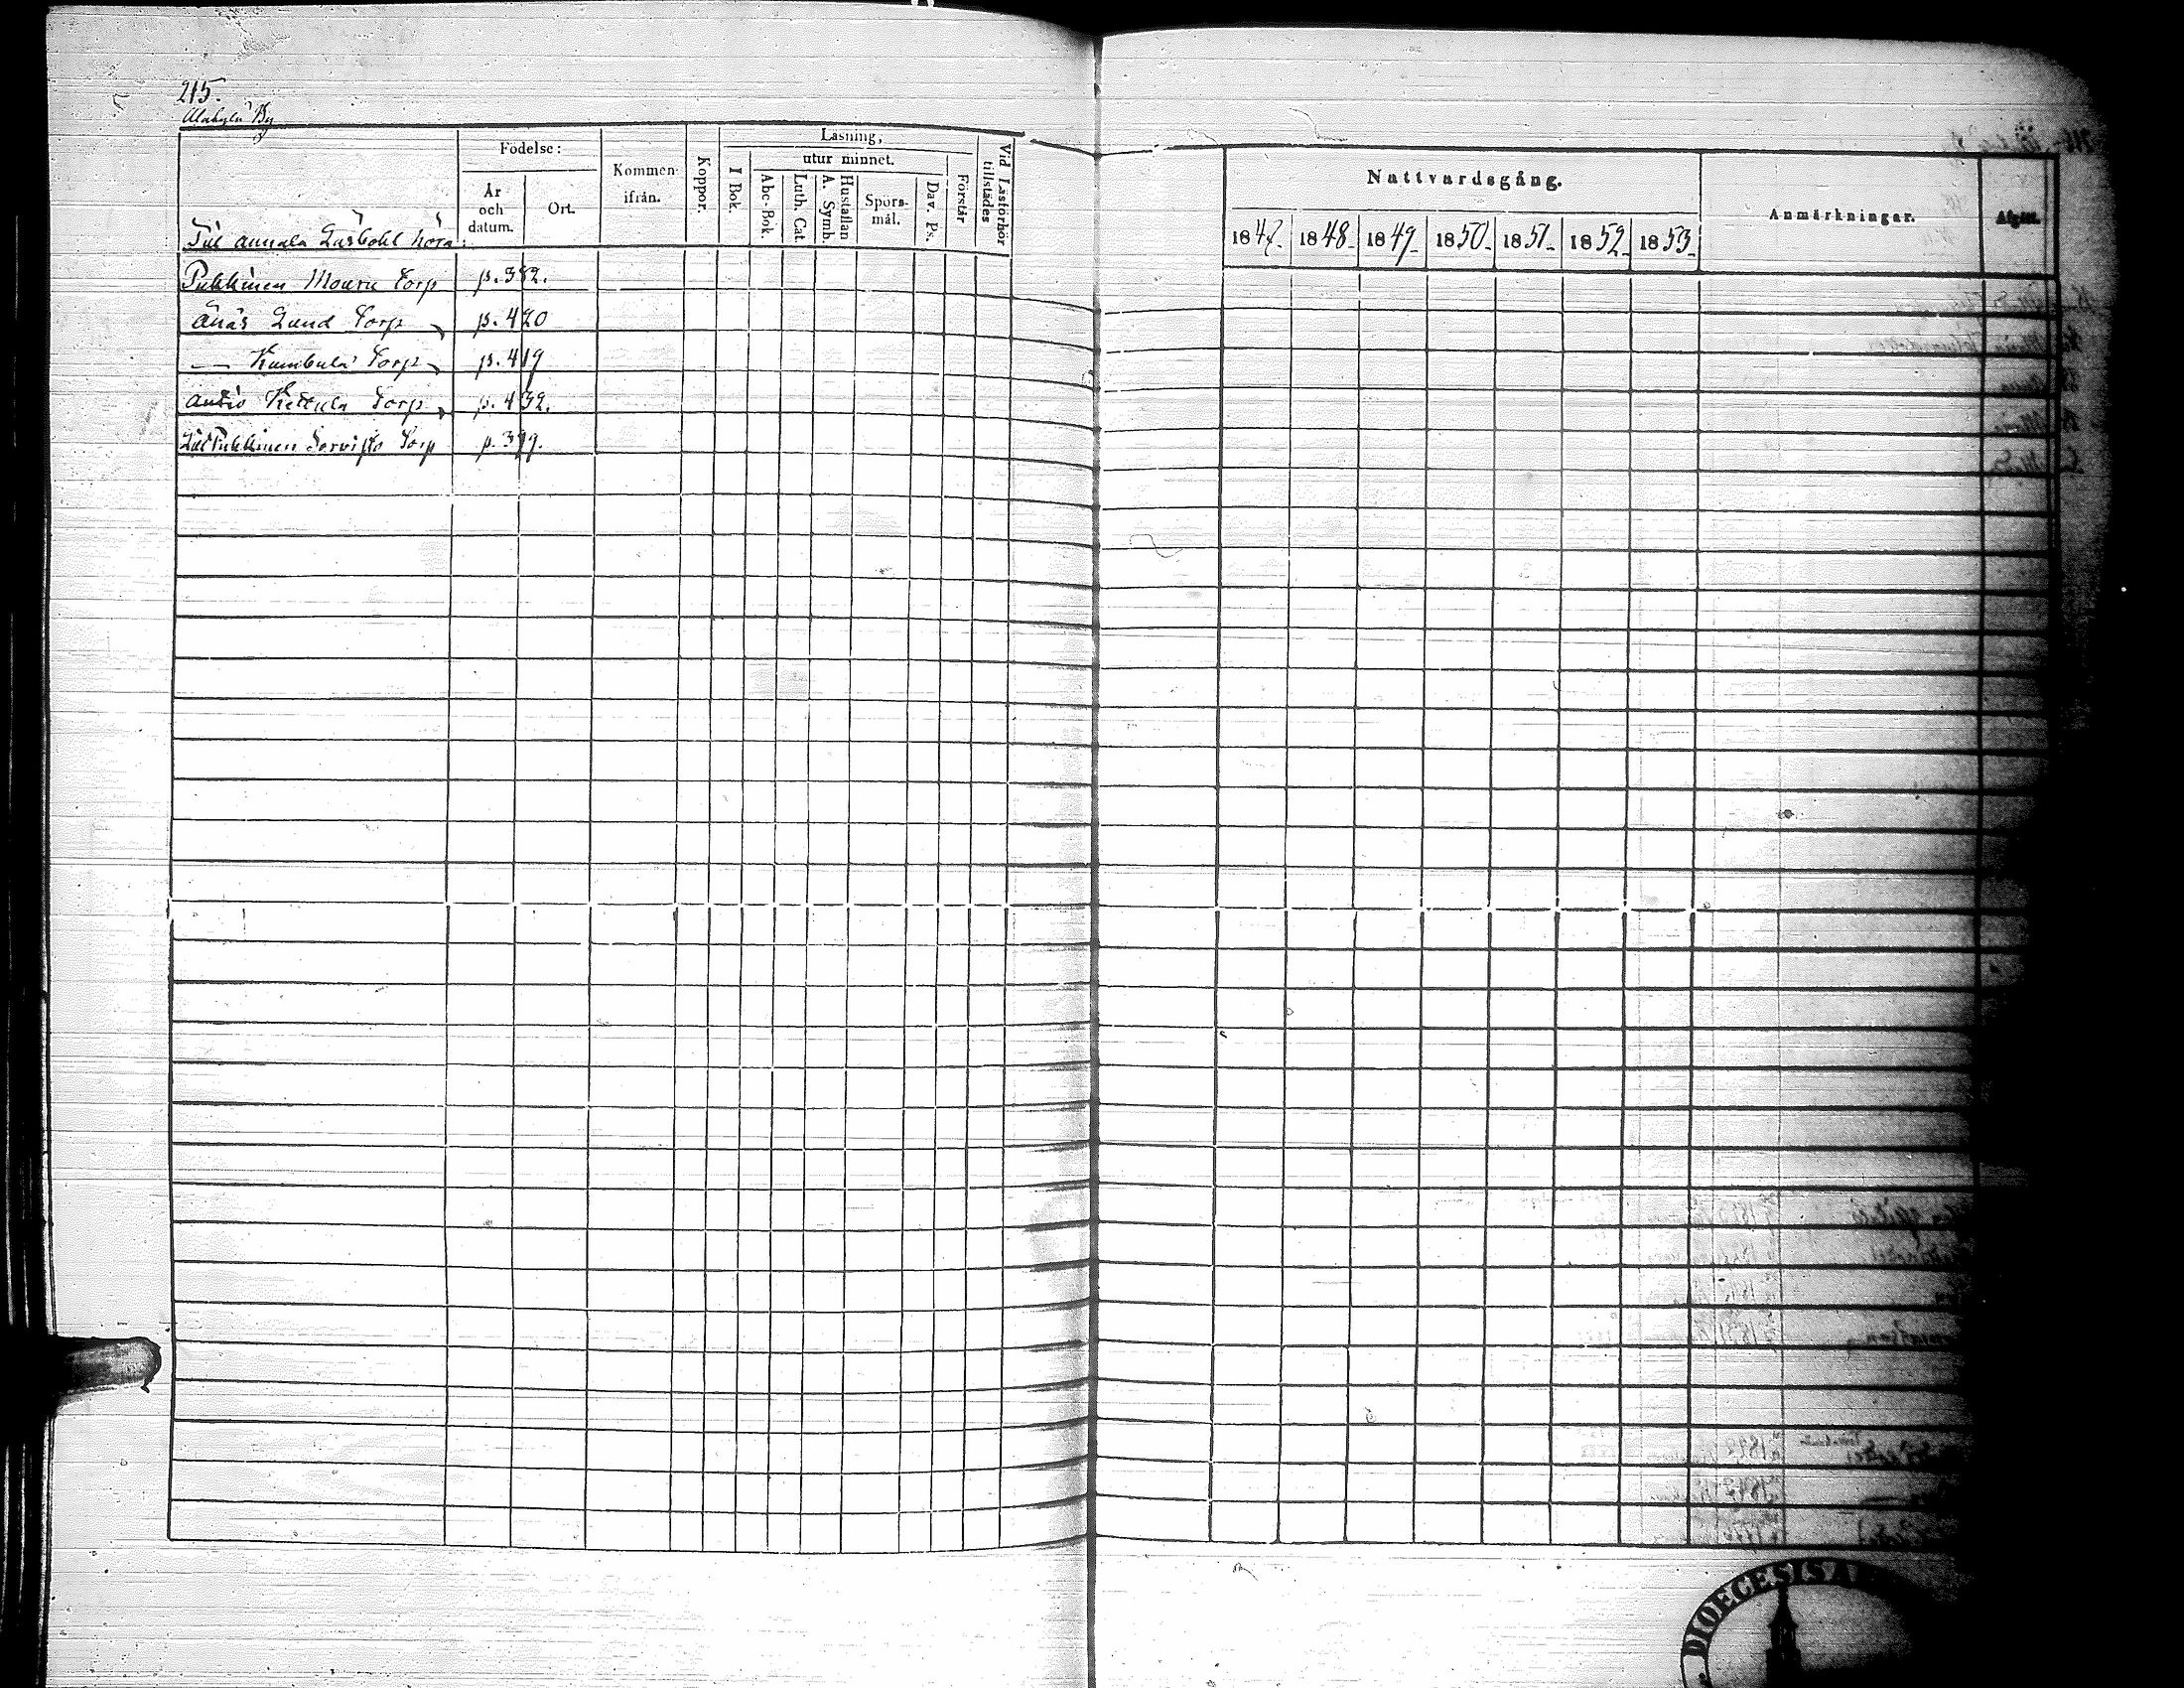 215.
Alakylä By
Födelse:
År och datum.
Ort.
Kommen ifrån.
Koppor.
Läsning,
I Bok.
utur minnet.
Abc-Bok.
Luth. Cat.
A. Symb. Hustaflan
Spörsmål.
Dav. Ps.
Förstår
Vid Läsförhör tillstädes
Nattvardsgång.
1847. 1848. 1849. 1850. 1851. 1852. 1853.
Anmärkningar.
Afgått.
Till Annala Lusbohl höra:
Pukkinen Mouru Torp p. 382.
Änäs Lund Torp p. 420
— Kumbula Torp p. 419
Kettula Torp p. 432.
Pukkinen Torp p. 379.
DIOECESIS A